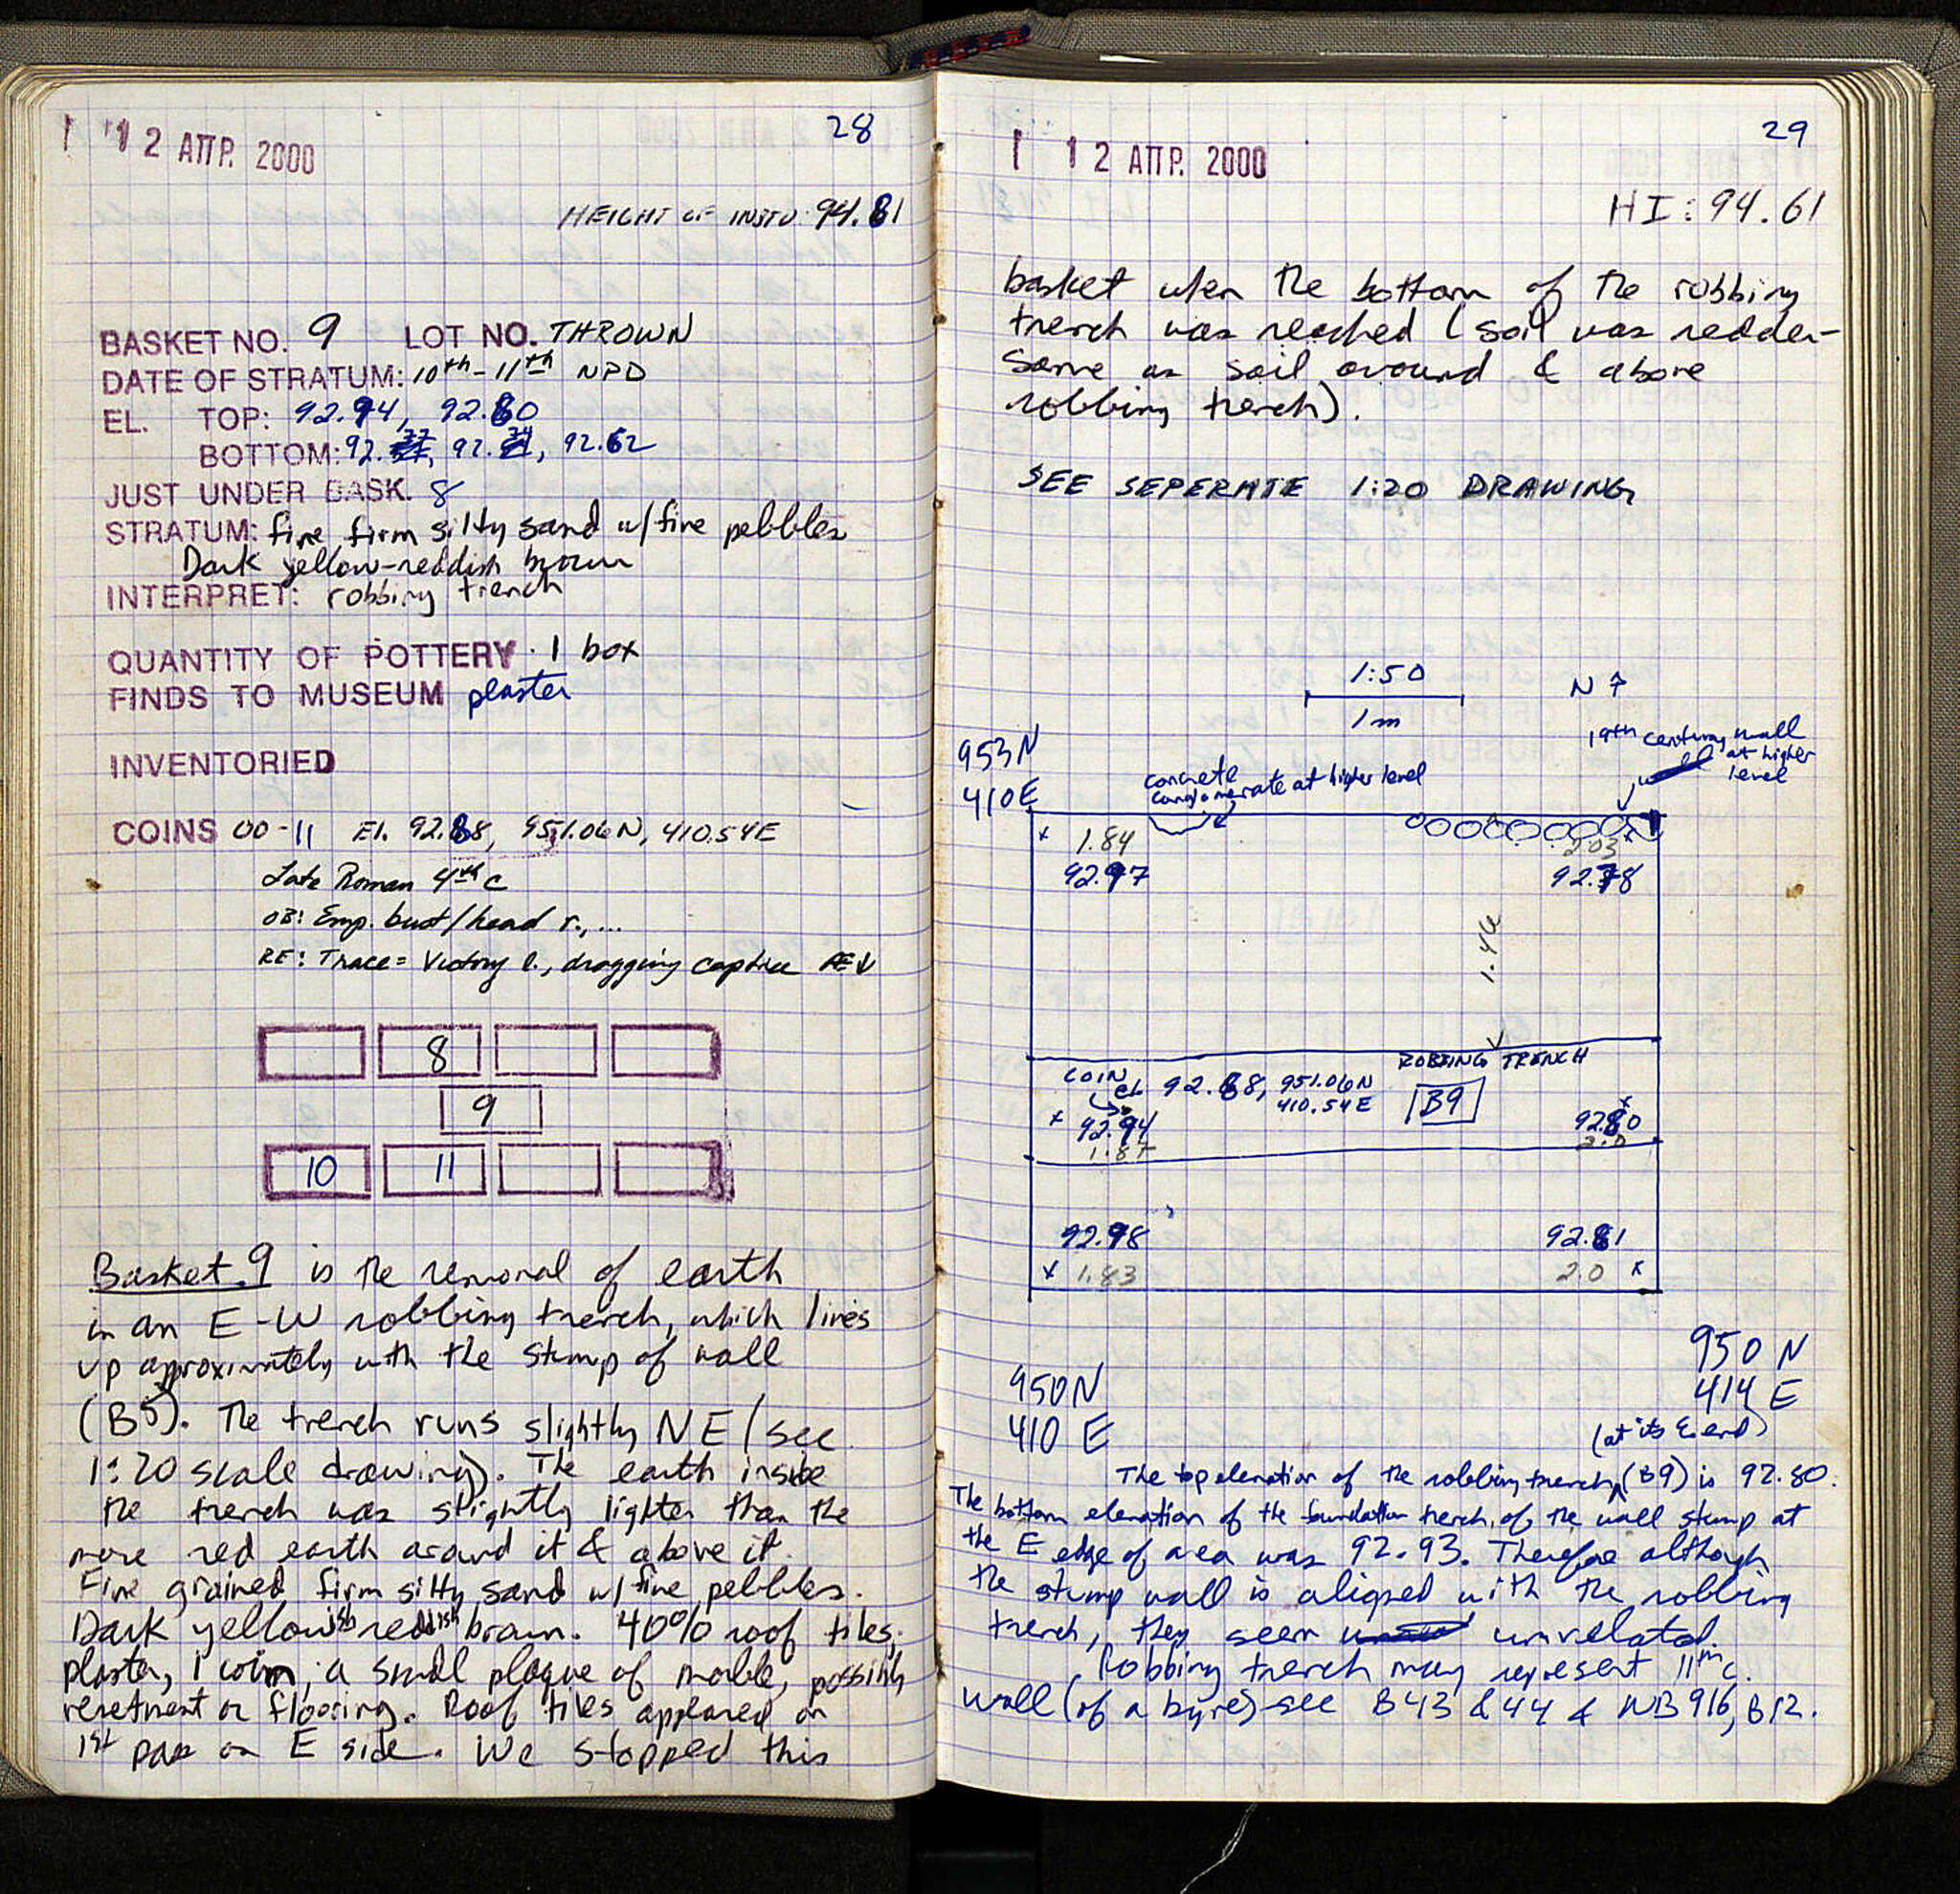 12 ΑΠΡ. 2000
28
HEIGHT OF INSTU: 94.81
BASKET NO. 9 LOT NO. THROWN
DATE OF STRATUM: 10th-11th NPD
EL. TOP: 92.94, 92.80
BOTTOM: 92. 92. 92.62
JUST UNDER BASK. 8
STRATUM: fine firm silty sand w/ fine pebbles
Dark yellow-reddish brown
INTERPRET: robbing trench
QUANTITY OF POTTERY · 1 box
FINDS TO MUSEUM plaster
INVENTORIED
COINS 00-11 El. 92.88, 951.06N, 410.54E
Late Roman 4th c
OB: Emp. bust/head r., ...
RE: Trace = Victory l., dragging captive AE↓
8
9
10 11
Basket 9 is the removal of earth
in an E-W robbing trench, which lines
up approximately with the stump of wall
(B5). The trench runs slightly NE (see
1:20 scale drawing). The earth inside
the trench was slightly lighter than the
more red earth around it & above it.
Fine grained firm silty sand w/ fine pebbles.
Dark yellowish reddish brown. 40% roof tiles,
plaster, 1 coin, a small plaque of marble, possibly
revetment or flooring. Roof tiles appeared on
1st pass on E side. We stopped this
12 ΑΠΡ. 2000
29
HI: 94.61
basket when the bottom of the robbing
trench was reached (soil was redder-
same as soil around & above
robbing trench).
SEE SEPERATE 1:20 DRAWING
1:50
1m
N ↑
19th century wall
at higher
level
953N
410E
concrete
conglomerate at higher level
1.84
92.97
2.03
92.78
1.46
ROBBING TRENCH
COIN
EL 92.88, 951.06N
410.54E
B9
92.94
1.87
92.80
2.0
92.98
1.83
92.81
2.0
950 N
414 E
950N
410 E
(at its E. end)
The top elevation of the robbing trench (B9) is 92.80.
The bottom elevation of the foundation trench of the wall stump at
the E edge of area was 92.93. Therefore although
the stump wall is aligned with the robbing
trench, they seem unrelated.
Robbing trench may represent 11th c.
wall (of a byre) see B43 & 44 & NB 916, B12.